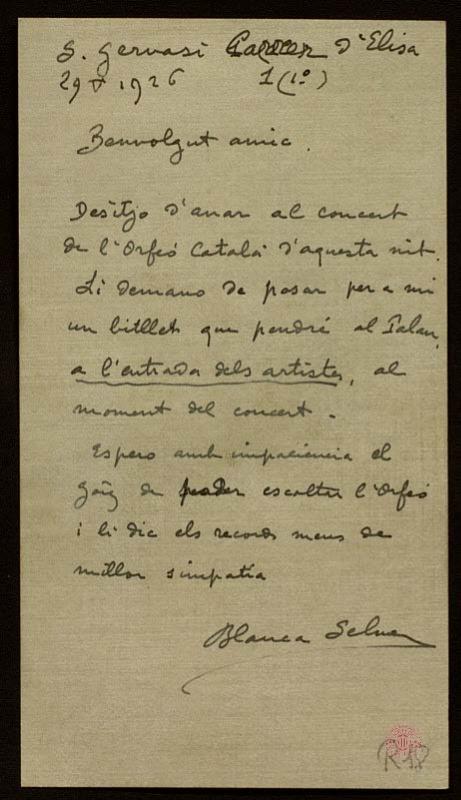 S. Gervasi Carrer d'Elisa
29 V 1926 1 (1º)
Benvolgut amic.
Desitjo d'anar al concert
de l'Orfeó Català d'aquesta nit.
Li demano de posar per a mi
un bitllet que pendré al Palau,
a l'entrada dels artistes, al
moment del concert.
Espero amb impaciencia el
goig de poder escoltar l'Orfeó
i li dic els records meus de
millor simpatía
Blanca Selva